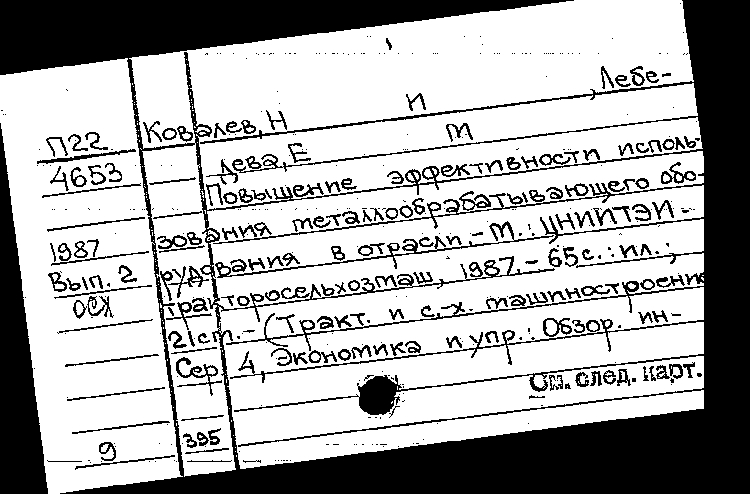 П22 Ковалев, Н И , Лебе-
4653 дева, Е М
Повышение эффективности исполь-
1987 зования металлообрабатывающего обо-
Вып. 2 рудования в отрасли.- М.: ЦНИИТЭИ-
ОСХ тракторосельхозмаш, 1987.- 65с.: ил.;
21см.- (Тракт. и с.-х. машиностроение
Сер. 4, Экономика и упр.: Обзор. ин-
См. след. карт.
9 395